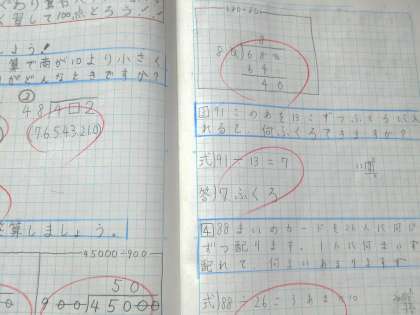 しょう！
算で商が10より小さく
がどんなときですか？
②
48)4□2
(7.6.5.4.3.2.1.0)
算しましょう。
45000÷900
50
900)45000
8
80)680
64
40
③91このあめを13こずつふくろに入
れると、何ふくろできますか？
式)91÷13=7
答)7ふくろ
④88まいのカードを26人に同じ
ずつ配ります。1人に何まいず
配れて、何まいあまりますか
式)88÷26=3あまり10